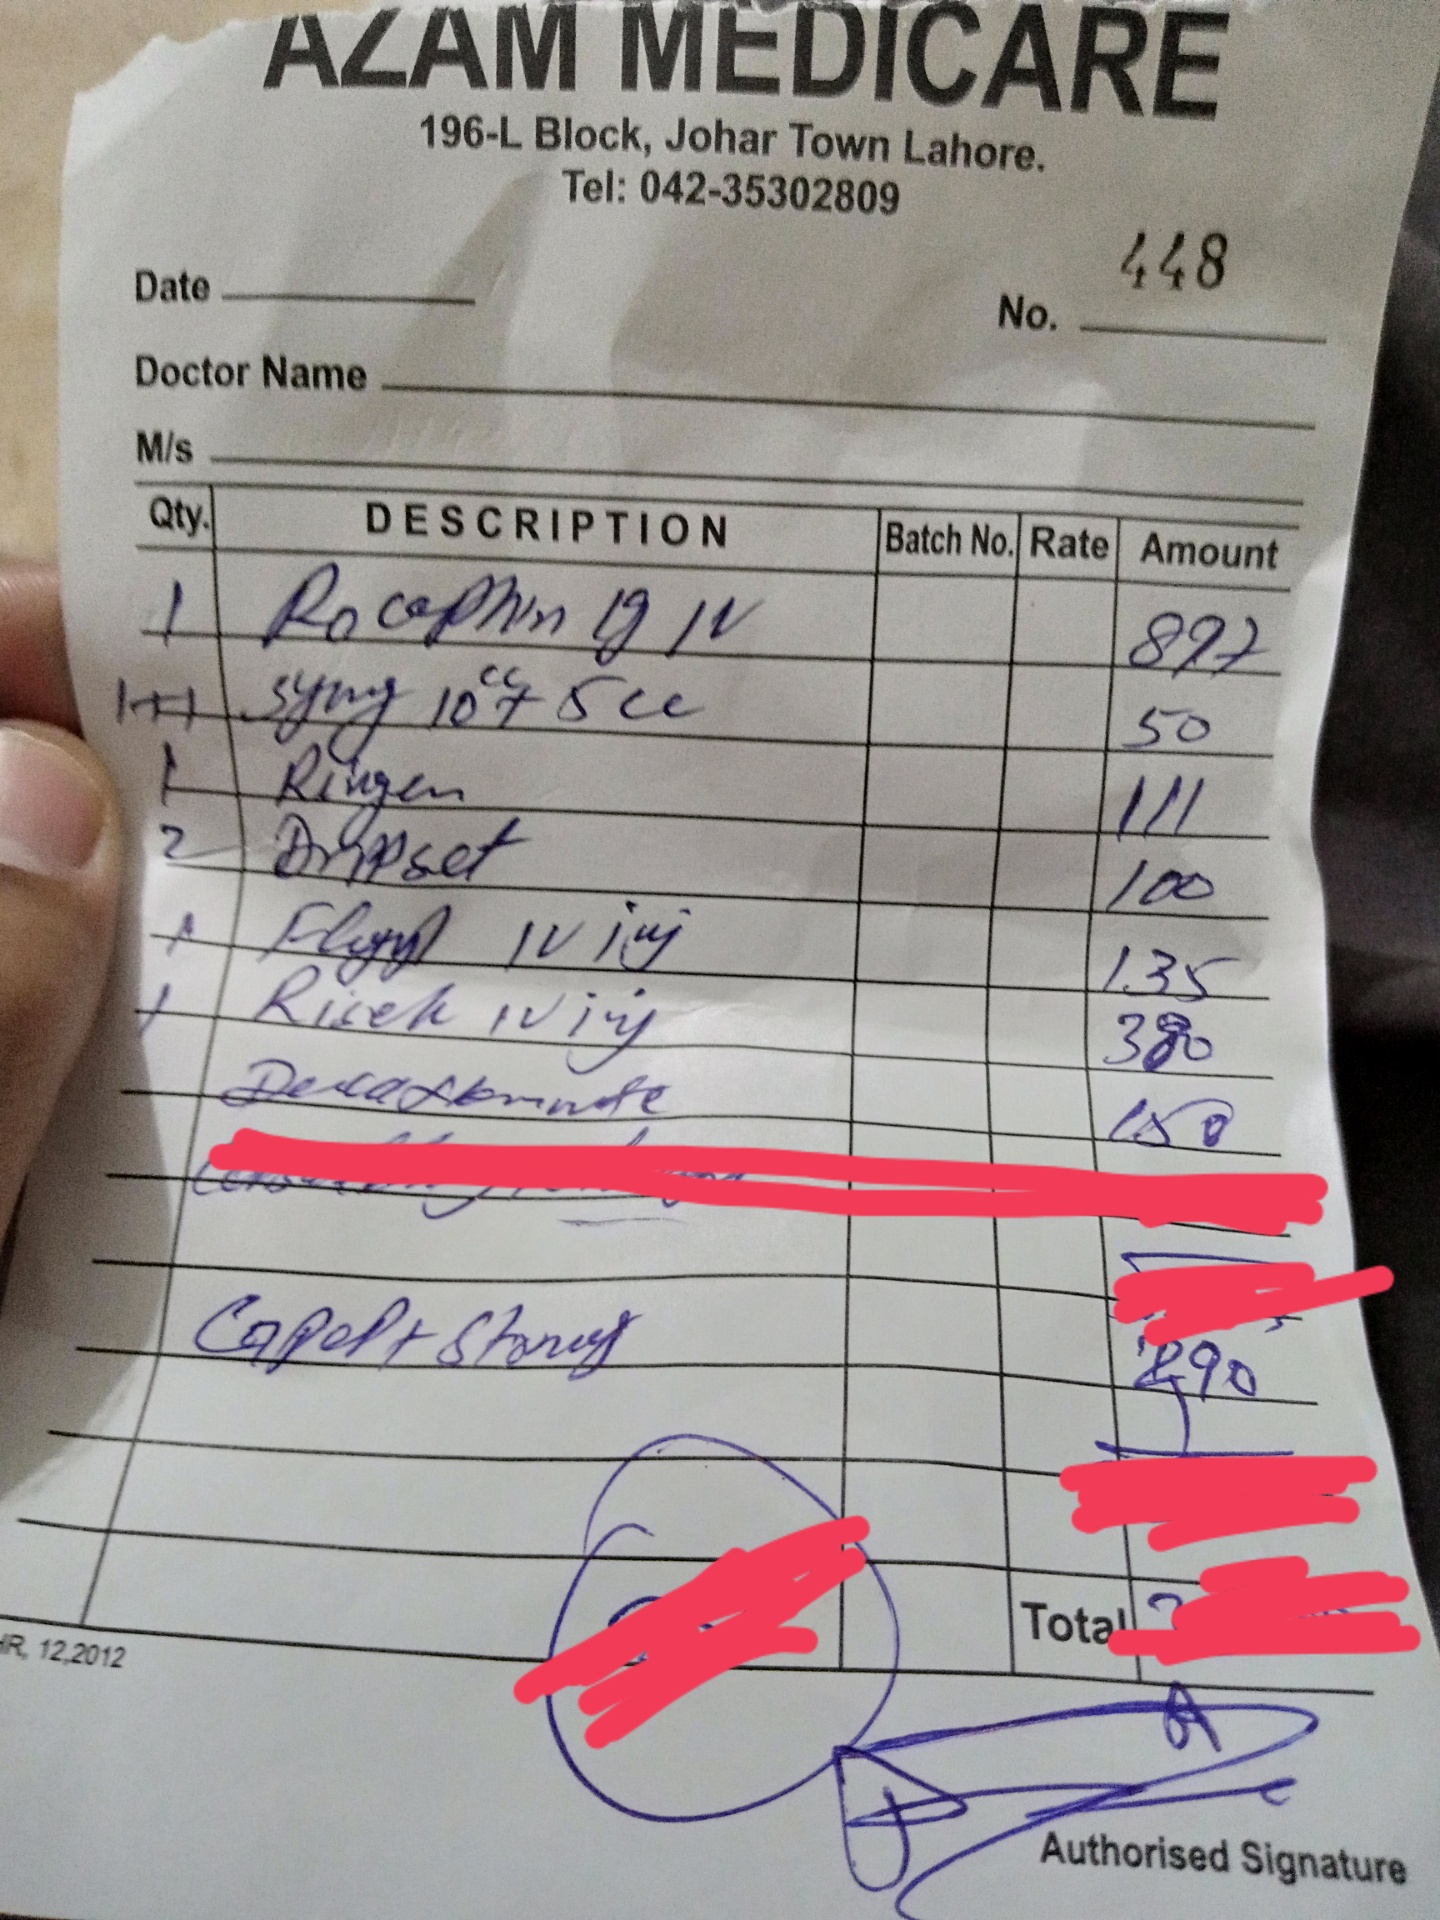 AZAM MEDICARE
196-L Block, Johar Town Lahore.
Tel: 042-35302809
Date
No. 448
Doctor Name
M/s
Qty. DESCRIPTION Batch No. Rate Amount
1 Rocephin 1g IV 897
1+1 syring 10cc + 5cc 50
1 Ringer 111
2 Dripset 100
1 Flagyl IV inj 135
1 Risek IV inj 380
150
290
Total
HR, 12,2012
Authorised Signature